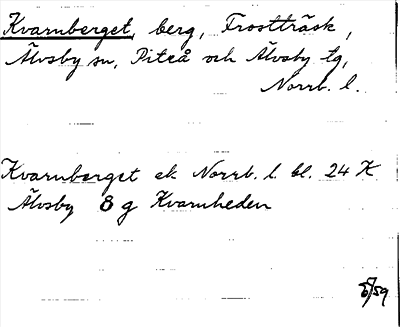 Kvarnberget, berg, Frostträsk,
Älvsby sn, Piteå och Älvsby tg,
Norrb. l.
Kvarnberget ek. Norrb. l. bl. 24 K
Älvsby 8 g Kvarnheden
/59